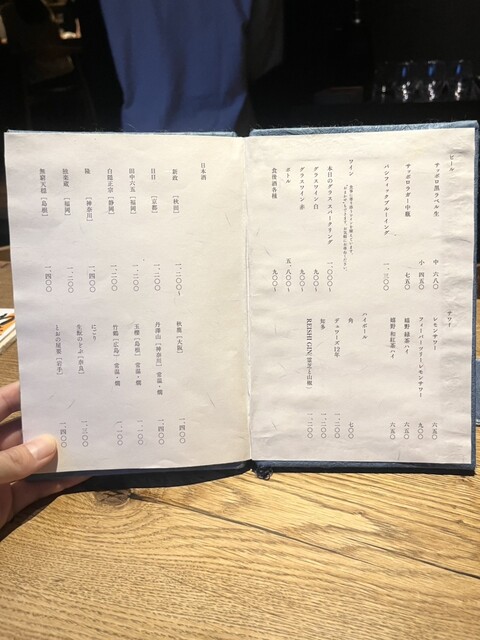 ビール
サッポロ黒ラベル 生 中 六八〇
小 四五〇
サッポロラガー 中瓶 七五〇
パシフィックブルーイング 一、三〇〇
ワイン
本日のグラス スパークリング 一、〇〇〇
グラスワイン 白 九〇〇〜
グラスワイン 赤 九〇〇〜
ボトル 五、八〇〇〜
食後酒各種 九〇〇〜
サワー
レモンサワー 六五〇
フォーハンドリーレモンサワー 九〇〇
嬉野 緑茶ハイ 六五〇
嬉野 和紅茶ハイ 六五〇
ハイボール
角 七〇〇
デュワーズ 12年 一、二〇〇
知多 一、二〇〇
REISHI GIN 一、二〇〇
日本酒
新政 [秋田] 一、二〇〇〜
日日 [京都] 一、二〇〇
田中六五 [福岡] 一、二〇〇
白隠正宗 [静岡] 一、二〇〇
隆 [神奈川] 一、四〇〇
独楽蔵 [福岡] 一、二〇〇
無窮天穏 [島根] 一、四〇〇
秋鹿 [大阪] 一、四〇〇
丹澤山 [神奈川] 常温・燗 一、四〇〇
玉櫻 [島根] 常温・燗 一、一〇〇
竹鶴 [広島] 常温・燗 一、一〇〇
にごり
生酛のどぶ [奈良] 一、三〇〇
とおの屋要 [岩手] 一、四〇〇